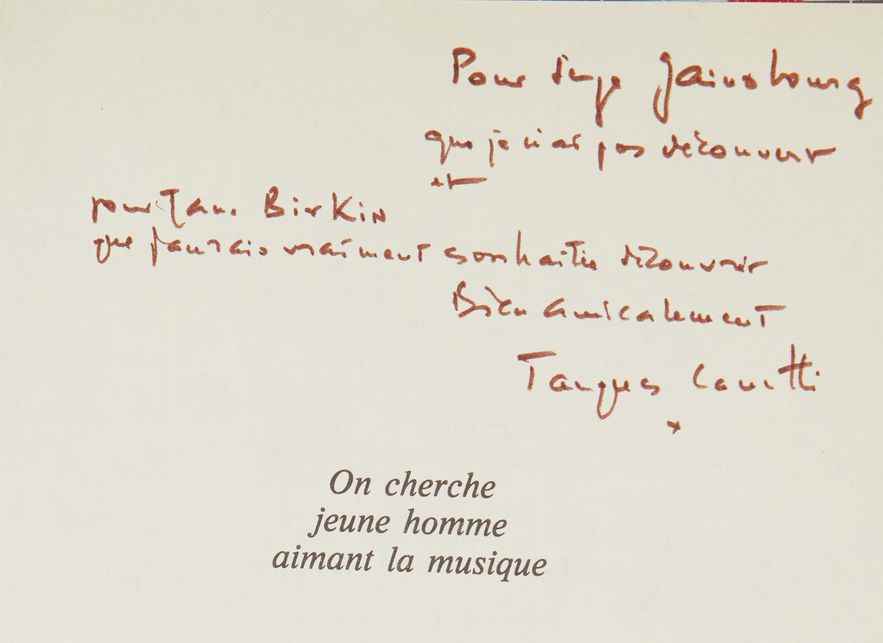 Pour Serge Gainsbourg
que je n'ai pas découvert
et
pour Jane Birkin
que j'aurais vraiment souhaitée découvrir
Bien amicalement
Jacques Canetti
On cherche
jeune homme
aimant la musique